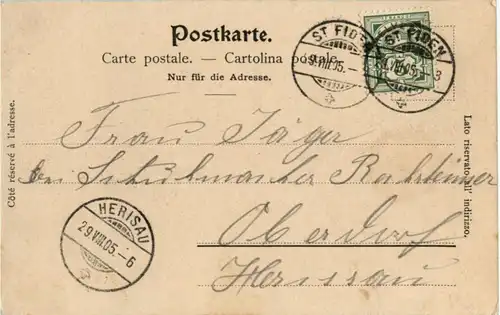 Postkarte.
Carte postale. — Cartolina postale.
Nur für die Adresse.
Côté réservé à l'adresse.
Lato riservato all' indirizzo.
ST FIDEN
29.VIII.05.–
ST FIDEN
VIII.05.–3
Frau Jäger
bei Schuhmacher
Oberdorf
Herisau
HERISAU
29.VIII.05.–6